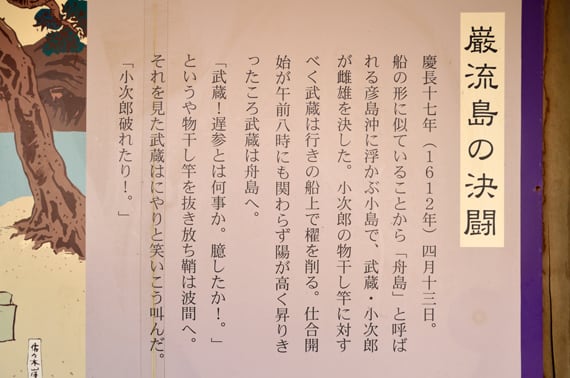 巌流島の決闘
慶長十七年（1612年）四月十三日。
船の形に似ていることから「舟島」と呼ば
れる彦島沖に浮かぶ小島で、武蔵・小次郎
が雌雄を決した。小次郎の物干し竿に対す
べく武蔵は行きの船上で櫂を削る。仕合開
始が午前八時にも関わらず陽が高く昇りき
ったころ武蔵は舟島へ。
「武蔵！遅参とは何事か。臆したか！。」
というや物干し竿を抜き放ち鞘は波間へ。
それを見た武蔵はにやりと笑いこう叫んだ。
「小次郎破れたり！。」